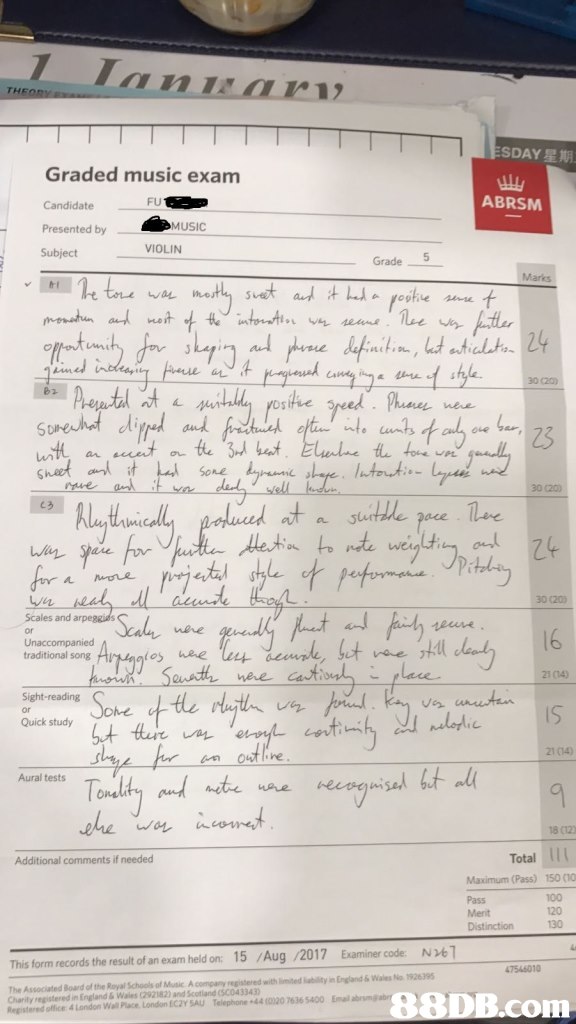 January
THEORY
ESDAY 星期
Graded music exam
ABRSM
Candidate FU
Presented by MUSIC
Subject VIOLIN
Grade 5
Marks
A1 The tone was mostly sweet and it had a positive sense of
momentum and most of the intonation was secure. There was further
opportunity for shaping and phrase definition, but articulation 24
gained increasing finesse as it progressed conveying a sense of style.
30 (20)
B2 Presented at a suitably positive speed. Phrases were
somewhat clipped and fractured often into units of only one bar, 23
with an accent on the 3rd beat. Elsewhere the tone was generally
sweet and it had some dynamic shape. Intonation lapses were
rare and it was clearly well known.
30 (20)
C3 Rhythmically produced at a suitable pace. There
was space for further attention to note weighting and 24
for a more projected style of performance. Pitching
was nearly all accurate though.
30 (20)
Scales and arpeggios
or
Unaccompanied
traditional song
Scales were generally fluent and fairly secure. 16
Arpeggios were less accurate, but were still clearly
known. Sevenths were cautiously in place.
21 (14)
Sight-reading
or
Quick study
Some of the rhythm was found. Key was uncertain 15
but there was enough continuity and melodic
shape for an outline.
21 (14)
Aural tests
Tonality and metre were recognised but all 9
else was incorrect.
18 (12)
Additional comments if needed
Total 111
Maximum (Pass) 150 (10
Pass 100
Merit 120
Distinction 130
This form records the result of an exam held on: 15 /Aug /2017 Examiner code: N267
47546010
The Associated Board of the Royal Schools of Music. A company registered with limited liability in England & Wales No. 1926395
Charity registered in England & Wales (292182) and Scotland (SC043343)
Registered office: 4 London Wall Place, London EC2Y 5AU Telephone +44 (0)20 7636 5400 Email
88DB.com